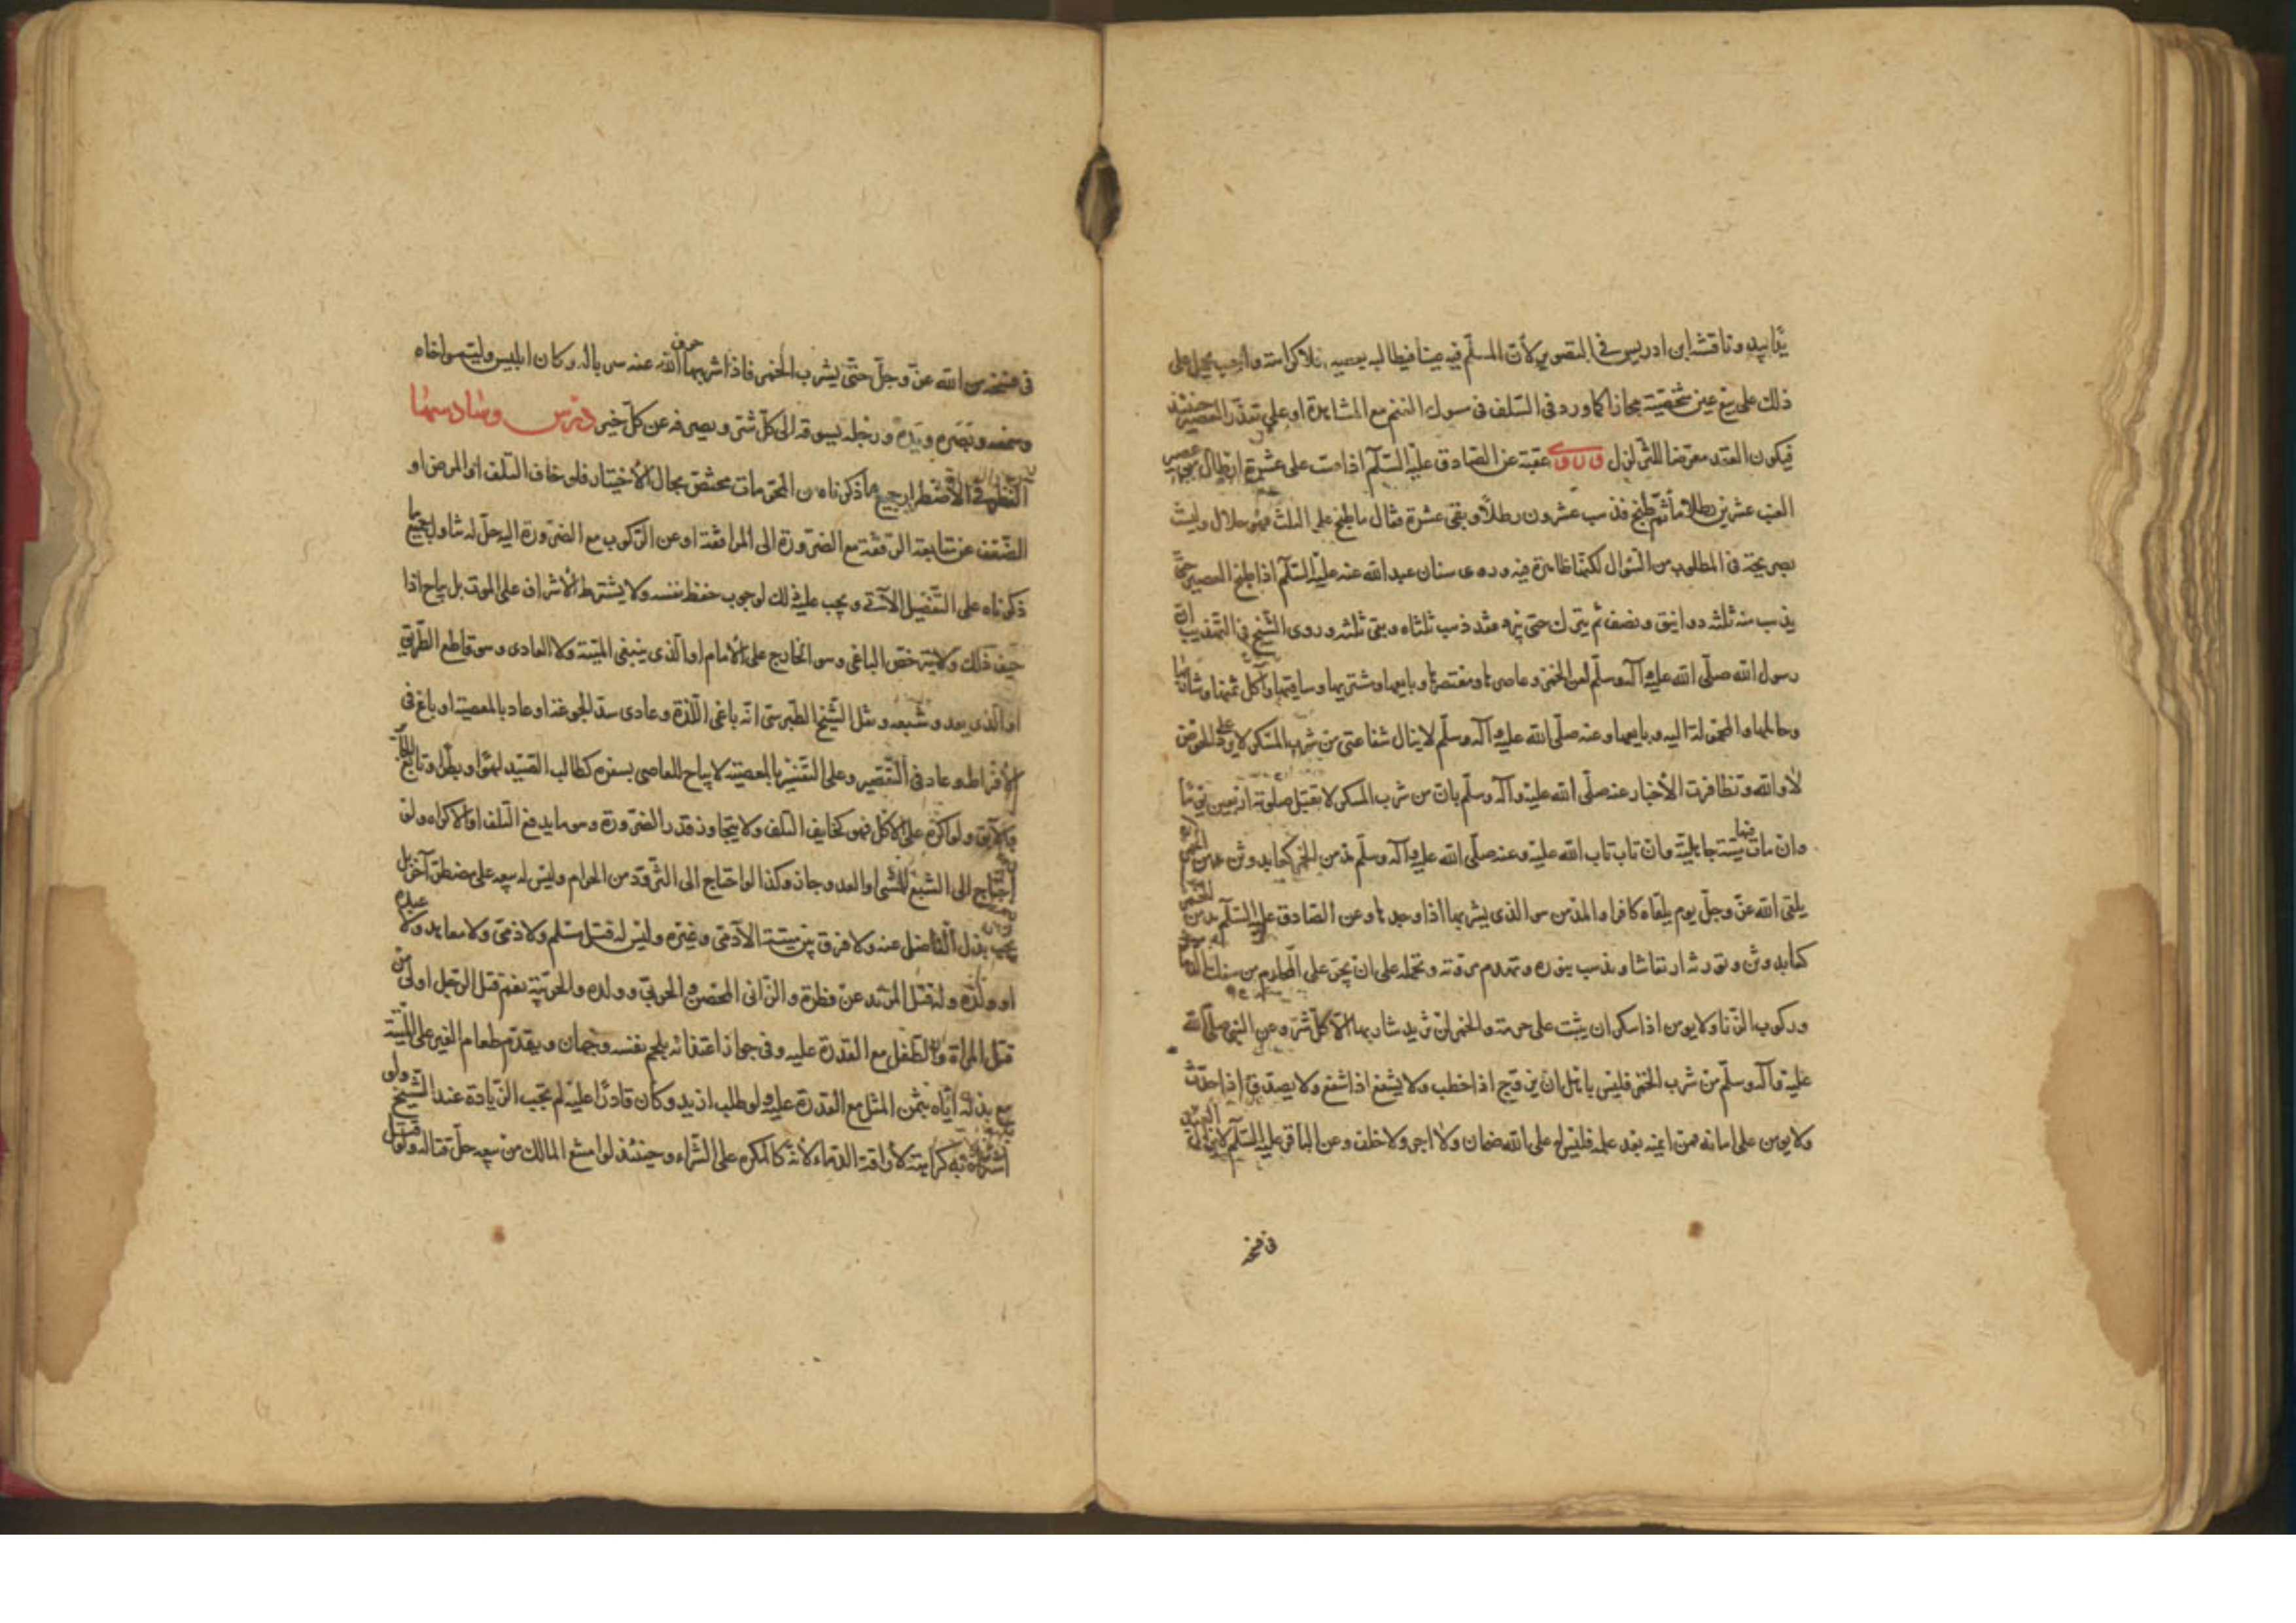 وناقشه ابن ادريس في التصوير لأن المسلم فيه فيطالبه فلا كراهة وأجيب بحمل على
ذلك على بيع عين شخصية مجازا كما ورد في السلف في مسوك الغنم مع المشاهدة او على تعذر العصير حينئذ
فيكون العقد معرضا للتزلزل عقبة عن الصادق عليه السلم اذا صب على عشرة ارطال من عصير
العنب عشرين رطلا ماء ثم طبخ فذهب عشرون رطلا وبقى عشرة فقال ما طبخ على الثلث فهو حلال وليست
بصريحة في المطلوب من السؤال لكنها ظاهرة فيه وروى سنان عبد الله عنه عليه السلم اذا طبخ العصير حتى
يذهب منه ثلثه دوانيق ونصف ثم يترك حتى يبرد فقد ذهب ثلثاه وبقى ثلثه وروى الشيخ في التهذيب ان
رسول الله صلى الله عليه وآله وسلم لعن الخمر وعاصرها ومعتصرها وبايعها ومشتريها وساقيها وآكل ثمنها وشاربها
وحاملها والمحمولة اليه وبايعها وعنه صلى الله عليه وآله وسلم لا ينال شفاعتى من شرب المسكر لا يرد على الحوض
لا والله وتظافرت الأخبار عنه صلى الله عليه وآله وسلم بان من شرب المسكر لا تقبل صلوته اربعين يوما
وان مات فيها ميتة جاهلية وان تاب تاب الله عليه وعنه صلى الله عليه وآله وسلم مدمن الخمر كعابد وثن
يلقى الله عز وجل يوم يلقاه كافرا والمدمن هو الذى يشربها اذا وجدها وعن الصادق عليه السلم مدمن الخمر
كعابد وثن وتورثه ارتعاشا ويذهب بنوره وتهدم مروته وتحمله على ان يجسر على المحارم من سفك الدماء
وركوب الزنا ولا يومن اذا سكر ان يثبت على حرمته والخمر لن تزيد شاربها الا كل شر وعن النبي صلى الله
عليه وآله وسلم من شرب الخمر فليس باهل ان يزوج اذا خطب ولا يشفع اذا شفع ولا يصدق اذا حدث
ولا يومن على امانة فمن ايمنه بعد علمه فليس له على الله ضمان ولا اجر ولا خلف وعن الباقر عليه السلم لا يزال العبد
في فسحة
في فسحة من الله عز وجل حتى يشرب الخمر فاذا شربها خرق الله عنه سرباله وكان ابليس وليه واخاه
وسمعه وبصره ويده ورجله يسوقه الى كل شر ويصرفه عن كل خير درس وسادسها
النظر في الاضطرار جميع ما ذكرناه من المحرمات مختص بحال الاختيار فلو خاف التلف او المرض او
الضعف عن متابعة الرفقة مع الضرورة الى المرافقة او عن الركوب مع الضرورة اليه حل له تناول جميع ما
ذكرناه على التفصيل الآتى ويجب عليه ذلك لوجوب حفظ نفسه ولا يشترط الاشراف على الموت بل يباح اذا
خيف ذلك ولا يترخص الباغى وهو الخارج على الامام او الذى يبغى الميتة ولا العادى وهو قاطع الطريق
او الذى يعدو شبعه ونقل الشيخ الطبرسى انه باغى اللذة وعادى سد الجوعة او عاد بالمعصية او باغ في
الافراط وعاد في التقصير وعلى التفسير بالمعصية لا يباح للعاصى بسفره كطالب الصيد لهوا وبطرا وتابع الجائر
والآبق ولو اكره على الاكل فهو كخايف التلف ولا يتجاوز قدر الضرورة وهو ما يدفع التلف او الاكراه ولو
احتاج الى الشبع للمشى او العدو جاز وكذا لو احتاج الى التزود من الحرام وليس له بيعه على مضطر آخر بل
يجب بذل الفاضل عنه ولا فرق بين ميتة الآدمى وغيره وليس له قتل مسلم ولا ذمى ولا معاهد ولا عبده
او ولده وله قتل المرتد عن فطرة والزانى المحصن والحربى وولده والحربية نعم قتل الرجل اولى من
قتل المراة والطفل مع القدرة عليه وفى جواز اغتذائه بلحم نفسه وجهان ويقدم طعام الغير على الميتة
مع بذله اياه بثمن المثل مع القدرة عليه ولو طلب ازيد وكان قادرا عليه لم تجب الزيادة عند الشيخ ولو
اشتراه به كراهية لاراقة الدماء لانه كالمكره على الشراء وحينئذ لو امتنع المالك من بيعه حل قتاله ولو قتل